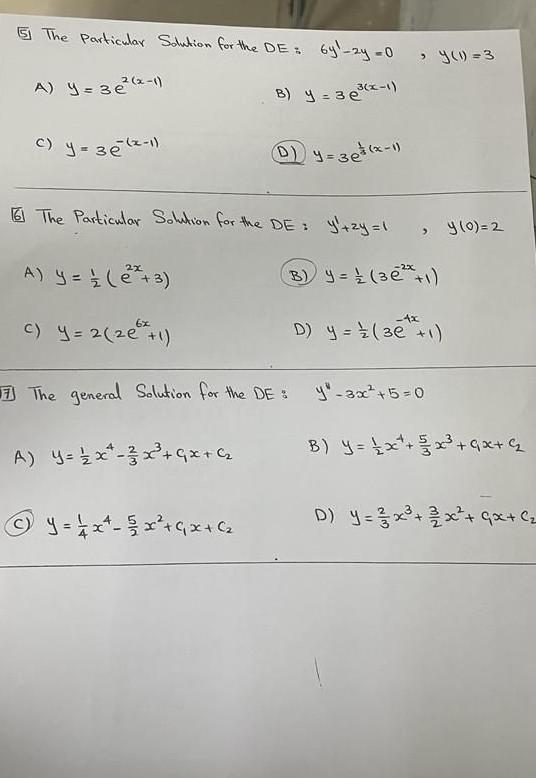 5 The Particular Solution for the DE : 6y' - 2y = 0 , y(1) = 3
A) y = 3e^{2(x-1)} B) y = 3e^{3(x-1)}
C) y = 3e^{-(x-1)} D) y = 3e^{\frac{1}{3}(x-1)}
6 The Particular Solution for the DE : y' + 2y = 1 , y(0) = 2
A) y = \frac{1}{2}(e^{2x} + 3) B) y = \frac{1}{2}(3e^{-2x} + 1)
C) y = 2(2e^{6x} + 1) D) y = \frac{1}{2}(3e^{-4x} + 1)
7 The general Solution for the DE : y'' - 3x² + 5 = 0
A) y = \frac{1}{2}x⁴ - \frac{2}{3}x³ + C₁x + C₂ B) y = \frac{1}{2}x⁴ + \frac{5}{3}x³ + C₁x + C₂
C) y = \frac{1}{4}x⁴ - \frac{5}{2}x² + C₁x + C₂ D) y = \frac{2}{3}x³ + \frac{3}{2}x² + C₁x + C₂